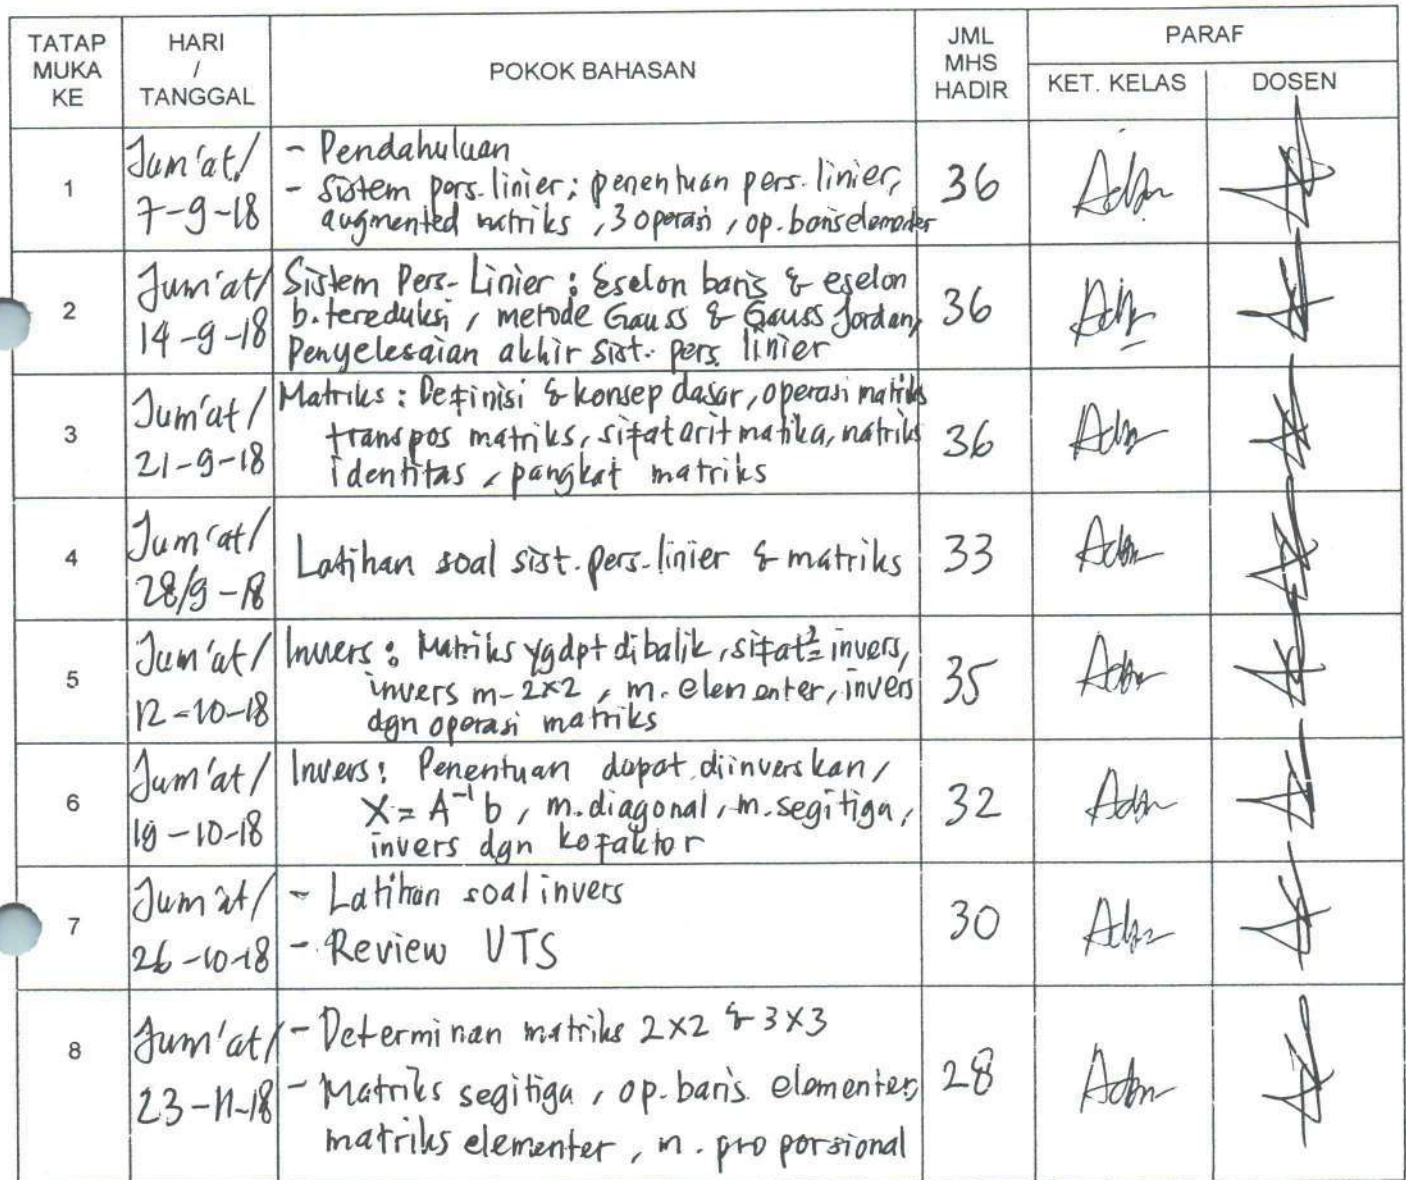 TATAP MUKA KE
HARI / TANGGAL
POKOK BAHASAN
JML MHS HADIR
PARAF
KET. KELAS
DOSEN
1
Jum'at/
7-9-18
- Pendahuluan
- Sistem pers. linier: penentuan pers. linier,
augmented matriks, 3 operasi, op. baris elementer
36
2
Jum'at/
14-9-18
Sistem Pers. Linier: Eselon baris & eselon
b. tereduksi, metode Gauss & Gauss Jordan,
Penyelesaian akhir sist. pers. linier
36
3
Jum'at/
21-9-18
Matriks: Definisi & konsep dasar, operasi matriks
transpos matriks, sifat aritmatika, matriks
identitas, pangkat matriks
36
4
Jum'at/
28/9-18
Latihan soal sist. pers. linier & matriks
33
5
Jum'at/
12-10-18
Invers: Matriks yg dpt dibalik, sifat² invers,
invers m. 2x2, m. elementer, invers
dgn operasi matriks
35
6
Jum'at/
19-10-18
Invers: Penentuan dapat diinverskan,
X = A⁻¹ b, m. diagonal, m. segitiga,
invers dgn kofaktor
32
7
Jum'at/
26-10-18
- Latihan soal invers
- Review UTS
30
8
Jum'at/
23-11-18
- Determinan matriks 2x2 & 3x3
- Matriks segitiga, op. baris elementer,
matriks elementer, m. proporsional
28